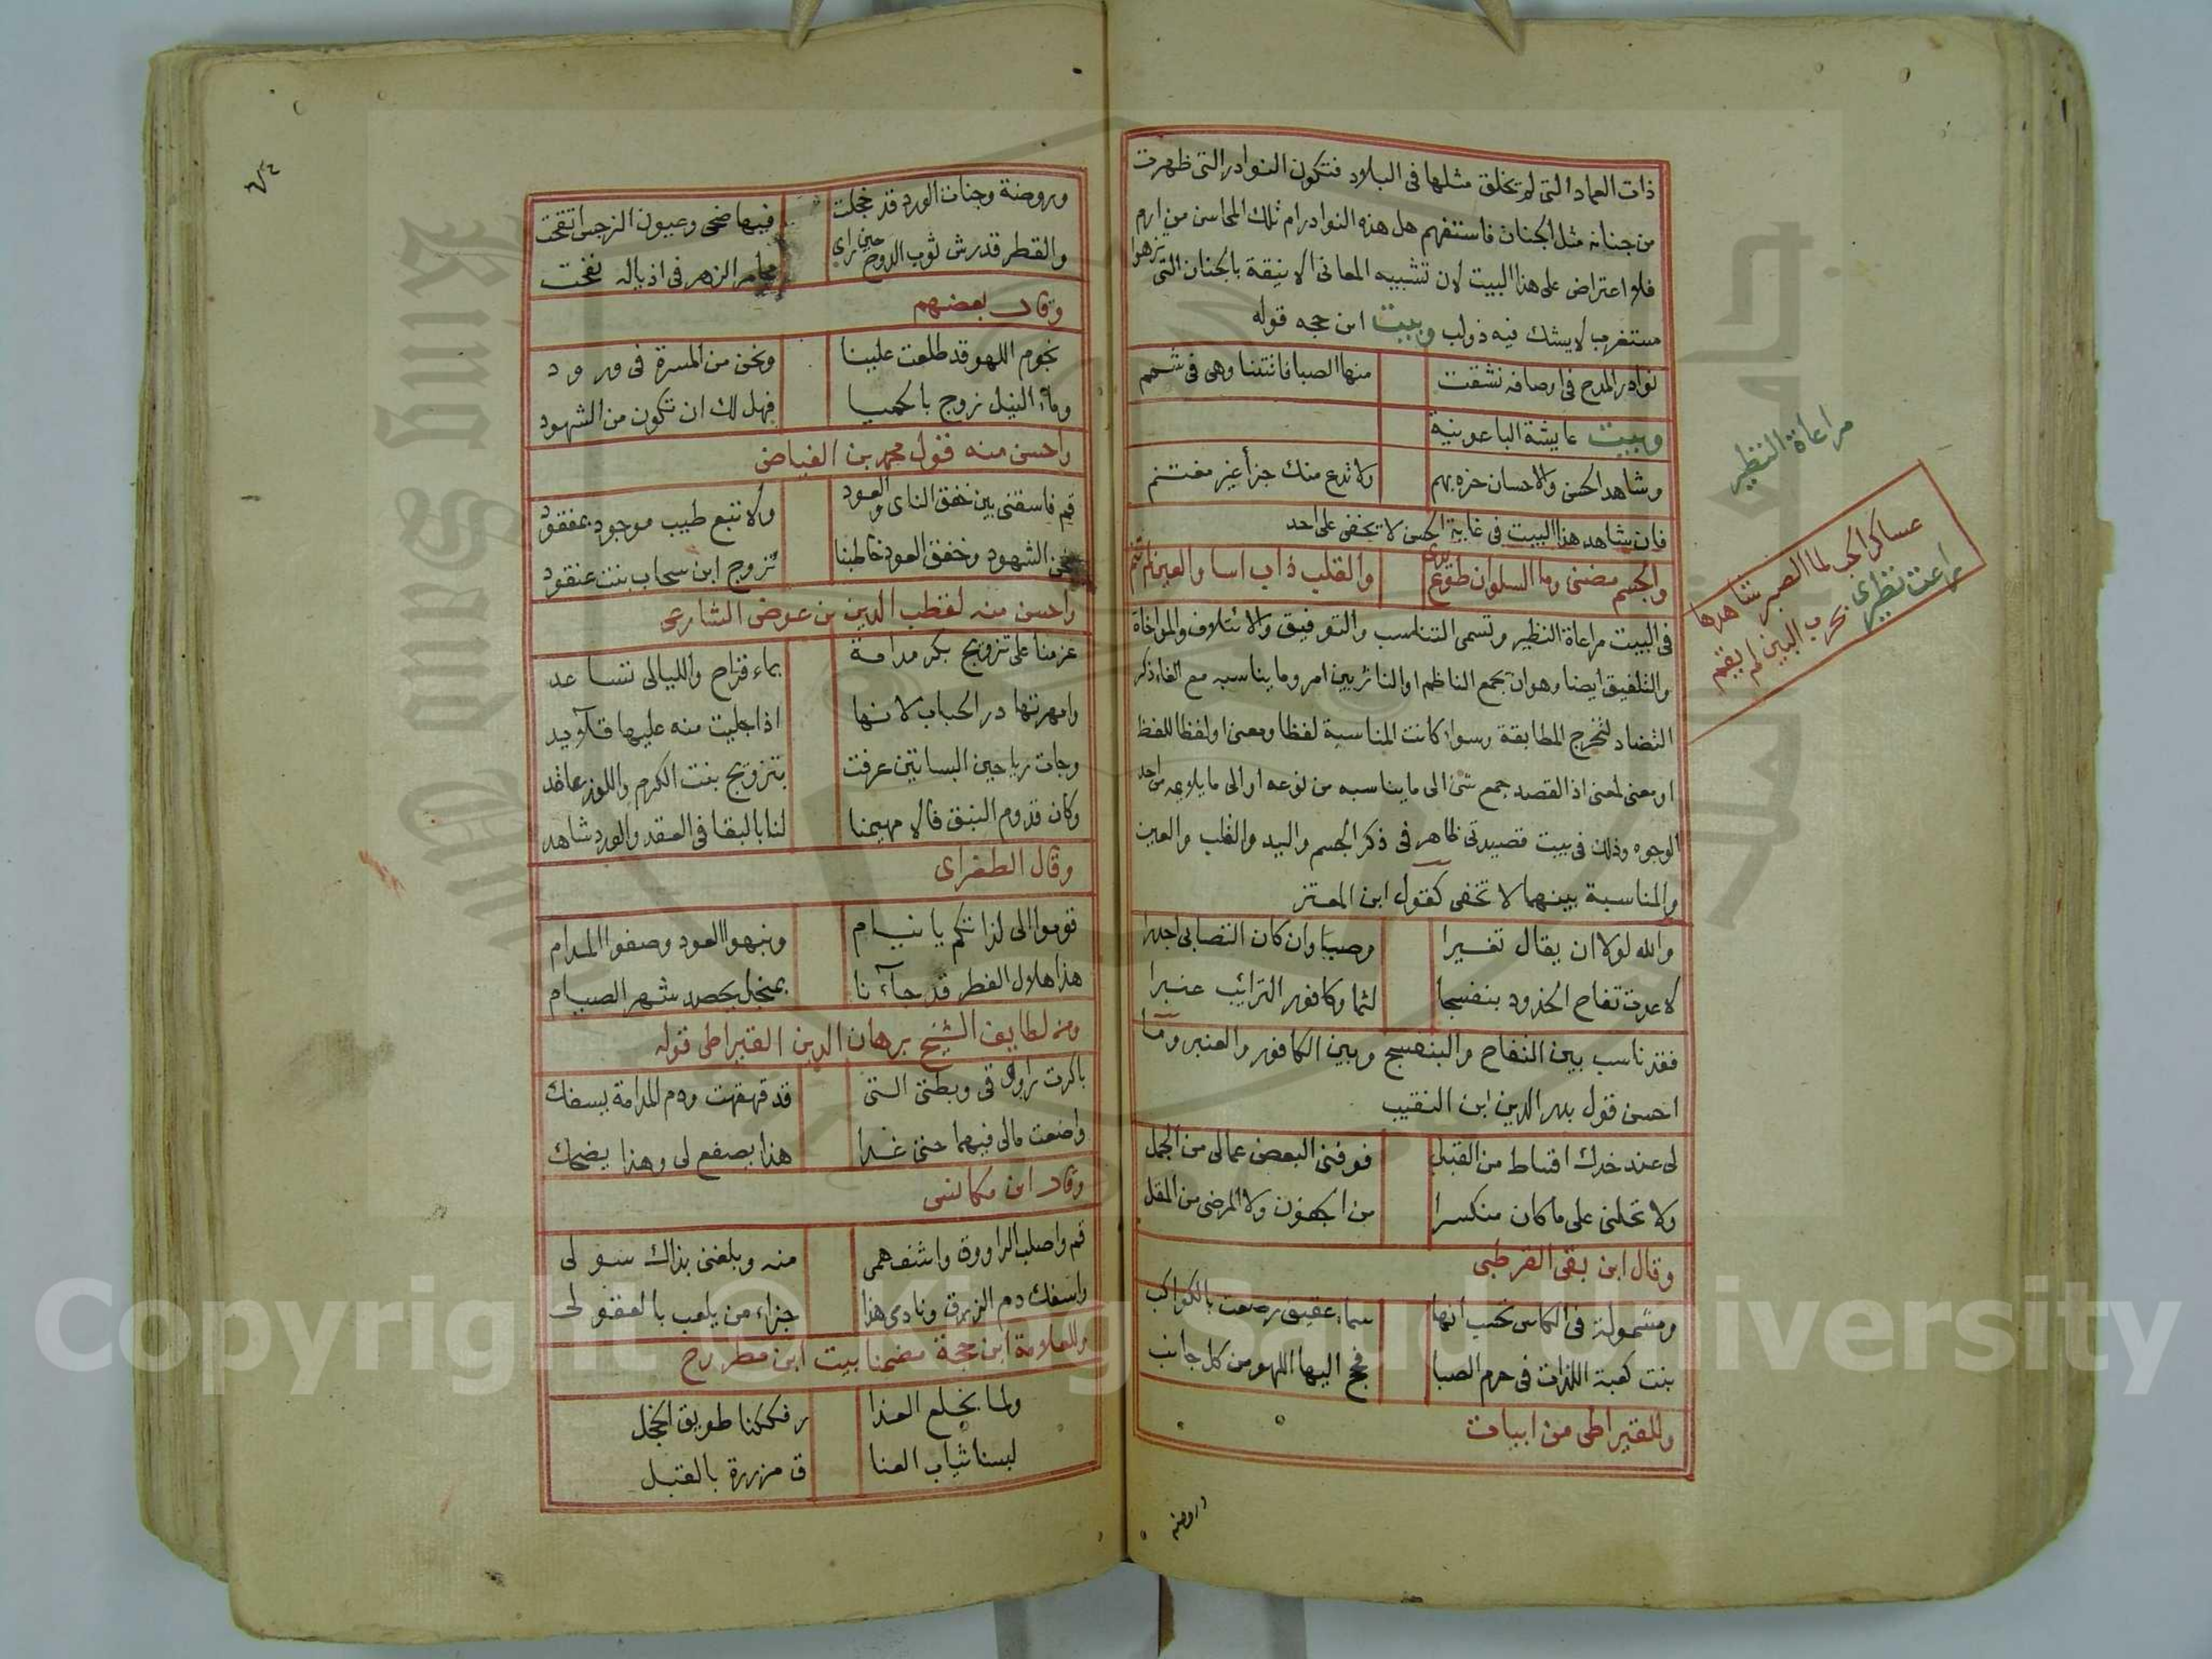 ذات العماد التى لم تخلق مثلها فى البلاد فتكون النوادر التى ظهرت
من جنانه مثل الجنان فاستفهم هل هذه النوادر ام تلك المحاسن من ارم
فلا اعتراض على هذا البيت لان تشبيه المعانى الانيقة بالجنان التى تزهوا
مستغرب لا يشك فيه ذولب وبيت ابن حجه قوله
نوادر المدح فى اوصافه نشقت منها الصبا فانتنا وهى فى شمم
وبيت عايشة الباعونية
وشاهد الحسن والاحسان حزه بهم ولا تدع منك جزأ غير مغتنم
فان شاهد هذا البيت فى غاية الحسن لا تخفى على احد
والجسم مضنى وما السلوان طوع يدى والقلب ذاب اسا والعين لم تنم
فى البيت مراعاة النظير وتسمى التناسب والتوفيق والائتلاف والمواخاة
والتلفيق ايضا وهو ان يجمع الناظم او الناثر بين امر وما يناسبه مع الغاء ذكر
التضاد لتخرج المطابقة وسواء كانت المناسبة لفظا ومعنى او لفظا للفظ
او معنى لمعنى اذ القصد جمع شئ الى ما يناسبه من نوعه او الى ما يلايمه من احد
الوجوه وذلك فى بيت قصيدتى ظاهر فى ذكر الجسم واليد والقلب والعين
والمناسبة بينهما لا تخفى كقول ابن المعتز
والله لولا ان يقال تغيرا وصبا وان كان التصابى اجدرا
لاعدت تفاح الخدود بنفسجا لثما وكافور الترائب عنبرا
فقد ناسب بين التفاح والبنفسج وبين الكافور والعنبر وما
احسن قول بدر الدين ابن النقيب
لى عند خدك اقساط من القبل فوفنى البعض عمالى من الجمل
ولا تحلنى على ما كان منكسرا من الجفون ولا المرضى من المقل
وقال ابن بقى القرطبى
ومشمولة فى الكاس تحسب انها سماء عقيق رصعت بالكواكب
بنت كعبة اللذات فى حرم الصبا فحج اليها اللهو من كل جانب
وللقيراطى من ابيات
وروضة
مراعاة النظير
عساكر الحب لما الصبر شاهدها
راعت نظيرى بحرب البين لم يقم
وروضة وجنات الورد قد خجلت فيها ضحى وعيون النرجس اتقحت
والقطر قد رش ثوب الدوح حين راى مجامر الزهر فى اذياله نفخت
وقال بعضهم
نجوم اللهو قد طلعت علينا ونحن من المسرة فى ورود
وماء النيل زوج بالحميا فهل لك ان تكون من الشهود
واحسن منه قول محمد بن الفياض
قم فاسقنى بين خفق الناى والعود ولا تبع طيب موجود بمفقود
نحن الشهود وخفق العود خاطبنا تزوج ابن سحاب بنت عنقود
واحسن منه لقطب الدين بن عوض الشارعى
عزمنا على تزويج بكر مدامة بماء قراح والليالى تساعد
وامهرتها در الحباب لانها اذا جليت منه عليها قلايد
وجات رياحين البساتين عرفت بتزويج بنت الكرم واللوز عاقد
وكان قدوم النبق فالا مهيمنا لنا بالبقا فى العقد والورد شاهد
وقال الطغراى
قوموا الى لذاتكم يا نيام ونبهوا العود وصفوا المدام
هذا هلال الفطر قد جاءنا بمنجل يحصد شهر الصيام
ومن لطايف الشيخ برهان الدين القيراطى قوله
باكرت راووقى وبطتى التى قد قهقهت ودم المدامة يسفك
واضعت مالى فيهما حتى غدا هذا يصفع لى وهذا يضحك
وقال ابن مكانس
قم واصلب الراووق واشف همى منه وبلغنى بذاك سولى
واسفك دم الزق ونادى هذا جزاء من يلعب بالعقول
وللعلامة ابن حجة مضمنا بيت ابن مطروح
ولما بخلع العذا ر فككنا طويق الخجل
لبسنا ثياب العنا ق مزررة بالقبل
Copyright © King Saud University